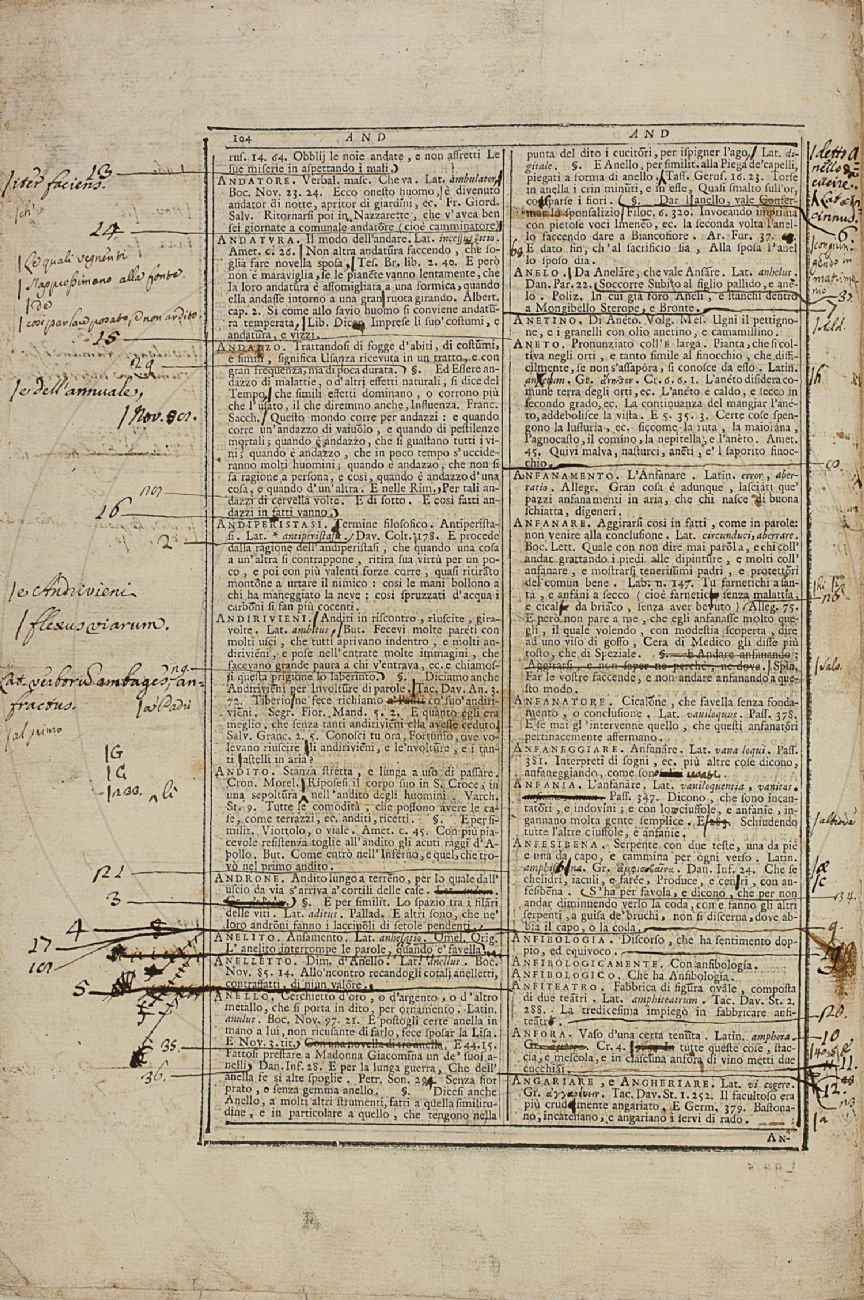 104 AND
rus. 14. 64. Obblij le noie andate, e non affretti Le
sue miserie in aspettando i mali.
ANDATORE. Verbal. masc. Che va. Lat. ambulator.
Boc. Nov. 23. 24. Ecco onesto huomo, è divenuto
andator di notte, apritor di giardini, ec. Fr. Giord.
Salv. Ritornarsi poi in Nazzarette, che v'avea ben
sei giornate a comunale andatore (cioè camminatore)
ANDATURA. Il modo dell'andare. Lat.
Amet. c. 26. Non altra andatura faccendo, che so-
glia fare novella sposa. Tes. Br. lib. 2. 40. E però
non è maraviglia, se le pianete vanno lentamente, che
la loro andatura è assomigliata a una formica, quando
ella andasse intorno a una gran ruota girando. Albert.
cap. 2. Si come allo savio huomo si conviene andatu-
ra temperata, Lib. Dic. Imprese li suo' costumi, e
andatura, e vizzi.
ANDAZZO. Trattandosi di fogge d'abiti, di costumi,
e simili, significa Usanza ricevuta in un tratto, e con
gran frequenza, ma di poca durata. §. Ed Essere an-
dazzo di malattie, o d'altri effetti naturali, si dice del
Tempo, che simili effetti dominano, o corrono più
che l'usato, il che diremmo anche, Influenza. Franc.
Sacch. Questo mondo corre per andazzi: e quando
corre un'andazzo di vaiuolo, e quando di pestilenze
mortali; quando è andazzo, che si guastano tutti i vi-
ni; quando è andazzo, che in poco tempo s'uccide-
ranno molti huomini; quando è andazzo, che non si
fa ragione a persona, e così, quando è andazzo d'una
cosa, e quando d'un'altra. E nelle Rim. Per tali an-
dazzi di cervella volte. E di sotto. E così fatti an-
dazzi in fatti vanno.
ANDIPERISTASI. Termine filosofico. Antiperista-
si. Lat. * antiperistasis. Dav. Colt. 178. E procede
dalla ragione dell'andiperistasi, che quando una cosa
a un'altra si contrappone, ritira sua virtù per un po-
co, e poi con più valenti forze corre, quasi ritirato
montone a urtare il nimico: così le mani bollono a
chi ha maneggiato la neve: così spruzzati d'acqua i
carboni si fan più cocenti.
ANDIRIVIENI. Anditi in riscontro, riuscite, gira-
volte. Lat. ambitus, But. Fecevi molte pareti con
molti usci, che tutti aprivano indentro, e molti an-
dirivieni, e pose nell'entrate molte immagini, che
facevano grande paura a chi v'entrava, ec. e chiamos-
si questa prigione lo laberinto. §. Diciamo anche
Andirivieni per Involture di parole. Tac. Dav. An. 3.
72. Tiberio ne fece richiamo co' suo' andiri-
vieni. Segr. Fior. Mand. 5. 2. E quanto egli era
meglio, che senza tanti andirivieni ella avesse ceduto.
Salv. Granc. 2. 5. Conosci tu ora, Fortunio, ove vo-
levano riuscire gli andirivieni, e le'nvolture, e i tan-
ti castelli in aria?
ANDITO. Stanza stretta, e lunga a uso di passare.
Cron. Morel. Riposesi il corpo suo in S. Croce in
una sepoltura nell'andito degli huomini. Varch.
St. 9. Tutte le comodità, che possono avere le ca-
se, come terrazzi, ec. anditi, ricetti. §. E per si-
milit. Viottolo, o viale. Amet. c. 45. Con più pia-
cevole resistenza toglie all'andito gli acuti raggi d'A-
pollo. But. Come entrò nell'Inferno, e quel, che tro-
vò nel primo andito.
ANDRONE. Andito lungo a terreno, per lo quale dall'
uscio da via s'arriva a' cortili delle case.
§. E per similit. Lo spazio tra i filari
delle viti. Lat. aditus. Pallad. E altri sono, che ne'
loro androni fanno i lacciuoli di setole pendenti.
ANELITO. Ansamento. Lat. anhelatio. Omel. Orig.
L'anelito interrompe le parole, quando e' favella.
ANELLETTO. Dim. d'Anello. Lat. anellus. Boc.
Nov. 85. 14. Allo'ncontro recandogli cotali anelletti,
contraffatti, di niun valore.
ANELLO. Cerchietto d'oro, o d'argento, o d'altro
metallo, che si porta in dito, per ornamento. Latin.
anulus. Boc. Nov. 97. 21. E postogli certe anella in
mano a lui, non ricusante di farlo, fece sposar la Lisa.
E Nov. 3. tit. Con una novella di tre anella. E 44. 15.
Fattosi prestare a Madonna Giacomina un de' suoi a-
nelli, Dan. Inf. 28. E per la lunga guerra, Che dell'
anella fe sì alte spoglie. Petr. Son. Senza fior
prato, o senza gemma anello. §. Dicesi anche
Anello, a molti altri strumenti, fatti a quella similitu-
dine, e in particolare a quello, che tengono nella
AND
punta del dito i cucitori, per ispigner l'ago. Lat. di-
gitale. §. E Anello, per similit. alla Piega de' capelli,
piegati a forma di anello. Tass. Gerus. 16. 23. Torse
in anella i crin minuti, e in esse, Quasi smalto sull'or,
cosparse i fiori. §. Dar l'anello, vale Confer-
mar lo sponsalizio. Filoc. 6. 320. Invocando imprima
con pietose voci Imeneo, ec. la seconda volta l'anel-
lo faccendo dare a Biancofiore. Ar. Fur. 37.
E dato fin, ch'al sacrificio sia, Alla sposa l'anel
lo sposo dia.
ANELO. Da Anelàre, che vale Ansàre. Lat. anhelus.
Dan. Par. 22. Soccorre Subito al figlio pallido, e ané-
lo. Poliz. In cui già foro Aneli, e stanchi dentro
a Mongibello Sterope, e Bronte.
ANETINO. D'Anéto. Volg. Mes. Ugni il pettigno-
ne, e i granelli con olio anetino, e camamillino.
ANETO. Pronunziato coll'E larga. Pianta, che si col-
tiva negli orti, e tanto simile al finocchio, che diffi-
cilmente, se non s'assapora, si conosce da esso. Latin.
anethum. Gr. ἄνηθον. Cr. 6. 6. 1. L'anéto disidera co-
mune terra degli orti, ec. L'anéto è caldo, e secco in
secondo grado, ec. La continuanza del mangiar l'ané-
to, addebolisce la vista. E 5. 35. 3. Certe cose spen-
gono la lussuria, ec. siccome la ruta, la maiorana,
l'agnocasto, il comino, la nepitella, e l'anèto. Amet.
45. Quivi malva, nasturci, anèti, e'l saporito finoc-
chio.
ANFANAMENTO. L'Anfanare. Latin. error, aber-
ratio. Allegr. Gran cosa è adunque, lasciati que'
pazzi anfanamenti in aria, che chi nasce di buona
schiatta, digeneri.
ANFANARE. Aggirarsi così in fatti, come in parole:
non venire alla conclusione. Lat. circunduci, aberrare.
Boc. Lett. Quale con non dire mai paròla, e chi coll'
andar grattando i piedi alle dipinture, e molti coll'
anfanare, e mostrarsi tenerissimi padri, e protettori
del comun bene. Lab. n. 147. Tu farnetichi a san-
tà, e anfani a secco (cioè farnetichi senza malattia,
e cicali da briaco, senza aver bevuto) Alleg. 75.
E però non pare a me, che egli anfanasse molto que-
gli, il quale volendo, con modestia scoperta, dire
ad uno viso di gosso, Cera di Medico gli disse più
tosto, che di Speziale. §. Andare anfanando:
Aggirarsi, e non saper nè perchè, nè dove. Spin.
Far le vostre faccende, e non andare anfanando a que-
sto modo.
ANFANATORE. Cicalone, che favella senza fonda-
mento, o conclusione. Lat. vaniloquus. Pass. 378.
E se mai gl'intervenne quello, che questi anfanatori
pertinacemente affermano.
ANFANEGGIARE. Anfanàre. Lat. vana loqui. Pass.
381. Interpreti di sogni, ec. più altre cose dicono,
anfaneggiando, come sono
ANFANIA. L'anfanàre. Lat. vaniloquentia, vanitas.
Pass. 347. Dicono, che sono incan-
tatori, e indovini; e con lor ciuffole, e anfanìe, in-
gannano molta gente semplice. E 283. Schiudendo
tutte l'altre ciuffole, e anfanìe.
ANFESIBENA. Serpente con due teste, una da piè
e una da capo, e cammina per ogni verso. Latin.
Gr. Dan. Inf. 24. Che se
chelidri, iaculi, e faree, Produce, e cencri, con an-
fesibena. C. S'ha per favola, e dicono, che per non
andar diminuendo verso la coda, come fanno gli altri
serpenti, a guisa de' bruchi, non si discerna, dove ab-
bia il capo, o la coda.
ANFIBOLOGIA. Discorso, che ha sentimento dop-
pio, ed equivoco.
ANFIBOLOGICAMENTE. Con anfibologìa.
ANFIBOLOGICO. Che ha Anfibologìa.
ANFITEATRO. Fabbrica di figura ovale, composta
di due teatri. Lat. amphiteatrum. Tac. Dav. St. 2.
288. La tredicesima impiegò in fabbricare anfi-
teatri.
ANFORA. Vaso d'una certa tenuta. Latin. amphora.
Cr. 4. tutte queste cose, stac-
cia, e mescola, e in ciascuna anfora di vino metti due
cucchiai.
ANGARIARE, e ANGHERIARE. Lat. vi cogere.
Gr. ἀγγαρεύειν. Tac. Dav. St. 1. 252. Il facultoso era
più crudamente angariato. E Germ. 379. Bastona-
no, incatenano, e angariano i servi di rado.
AN-
13
iter faciens.
24
Le quali vegnenti
s'approssimano alla fonte.
15
29
e dell'annuale,
Nov.
16
2
e Andrivieni
flexus viarum.
Lat. verborum ambages, an-
fractus.
al primo
G
G
3
4
17
5
35.
36.
detto a-
nello
cincinnus.
6
7
9.
10
11.
12.